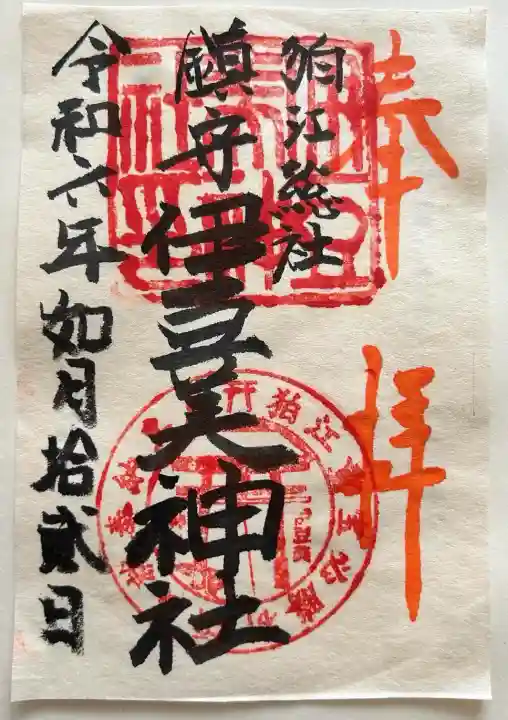 奉拝
狛江総社
鎮守伊豆美神社
令和六年如月拾貳日